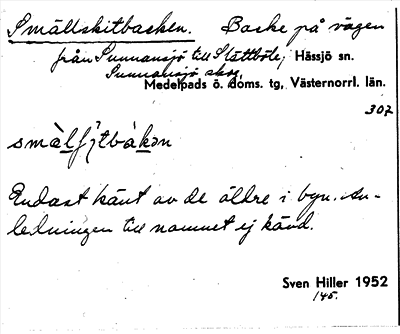 Smällskitbacken. Backe på vägen
från Sunnansjö till Slättböle, Hässjö sn.
Sunnansjö skog,
Medelpads ö. doms. tg, Västernorrl. län.
307
Endast känt av de äldre i byn. An-
ledningen till namnet ej känd.
Sven Hiller 1952
145.